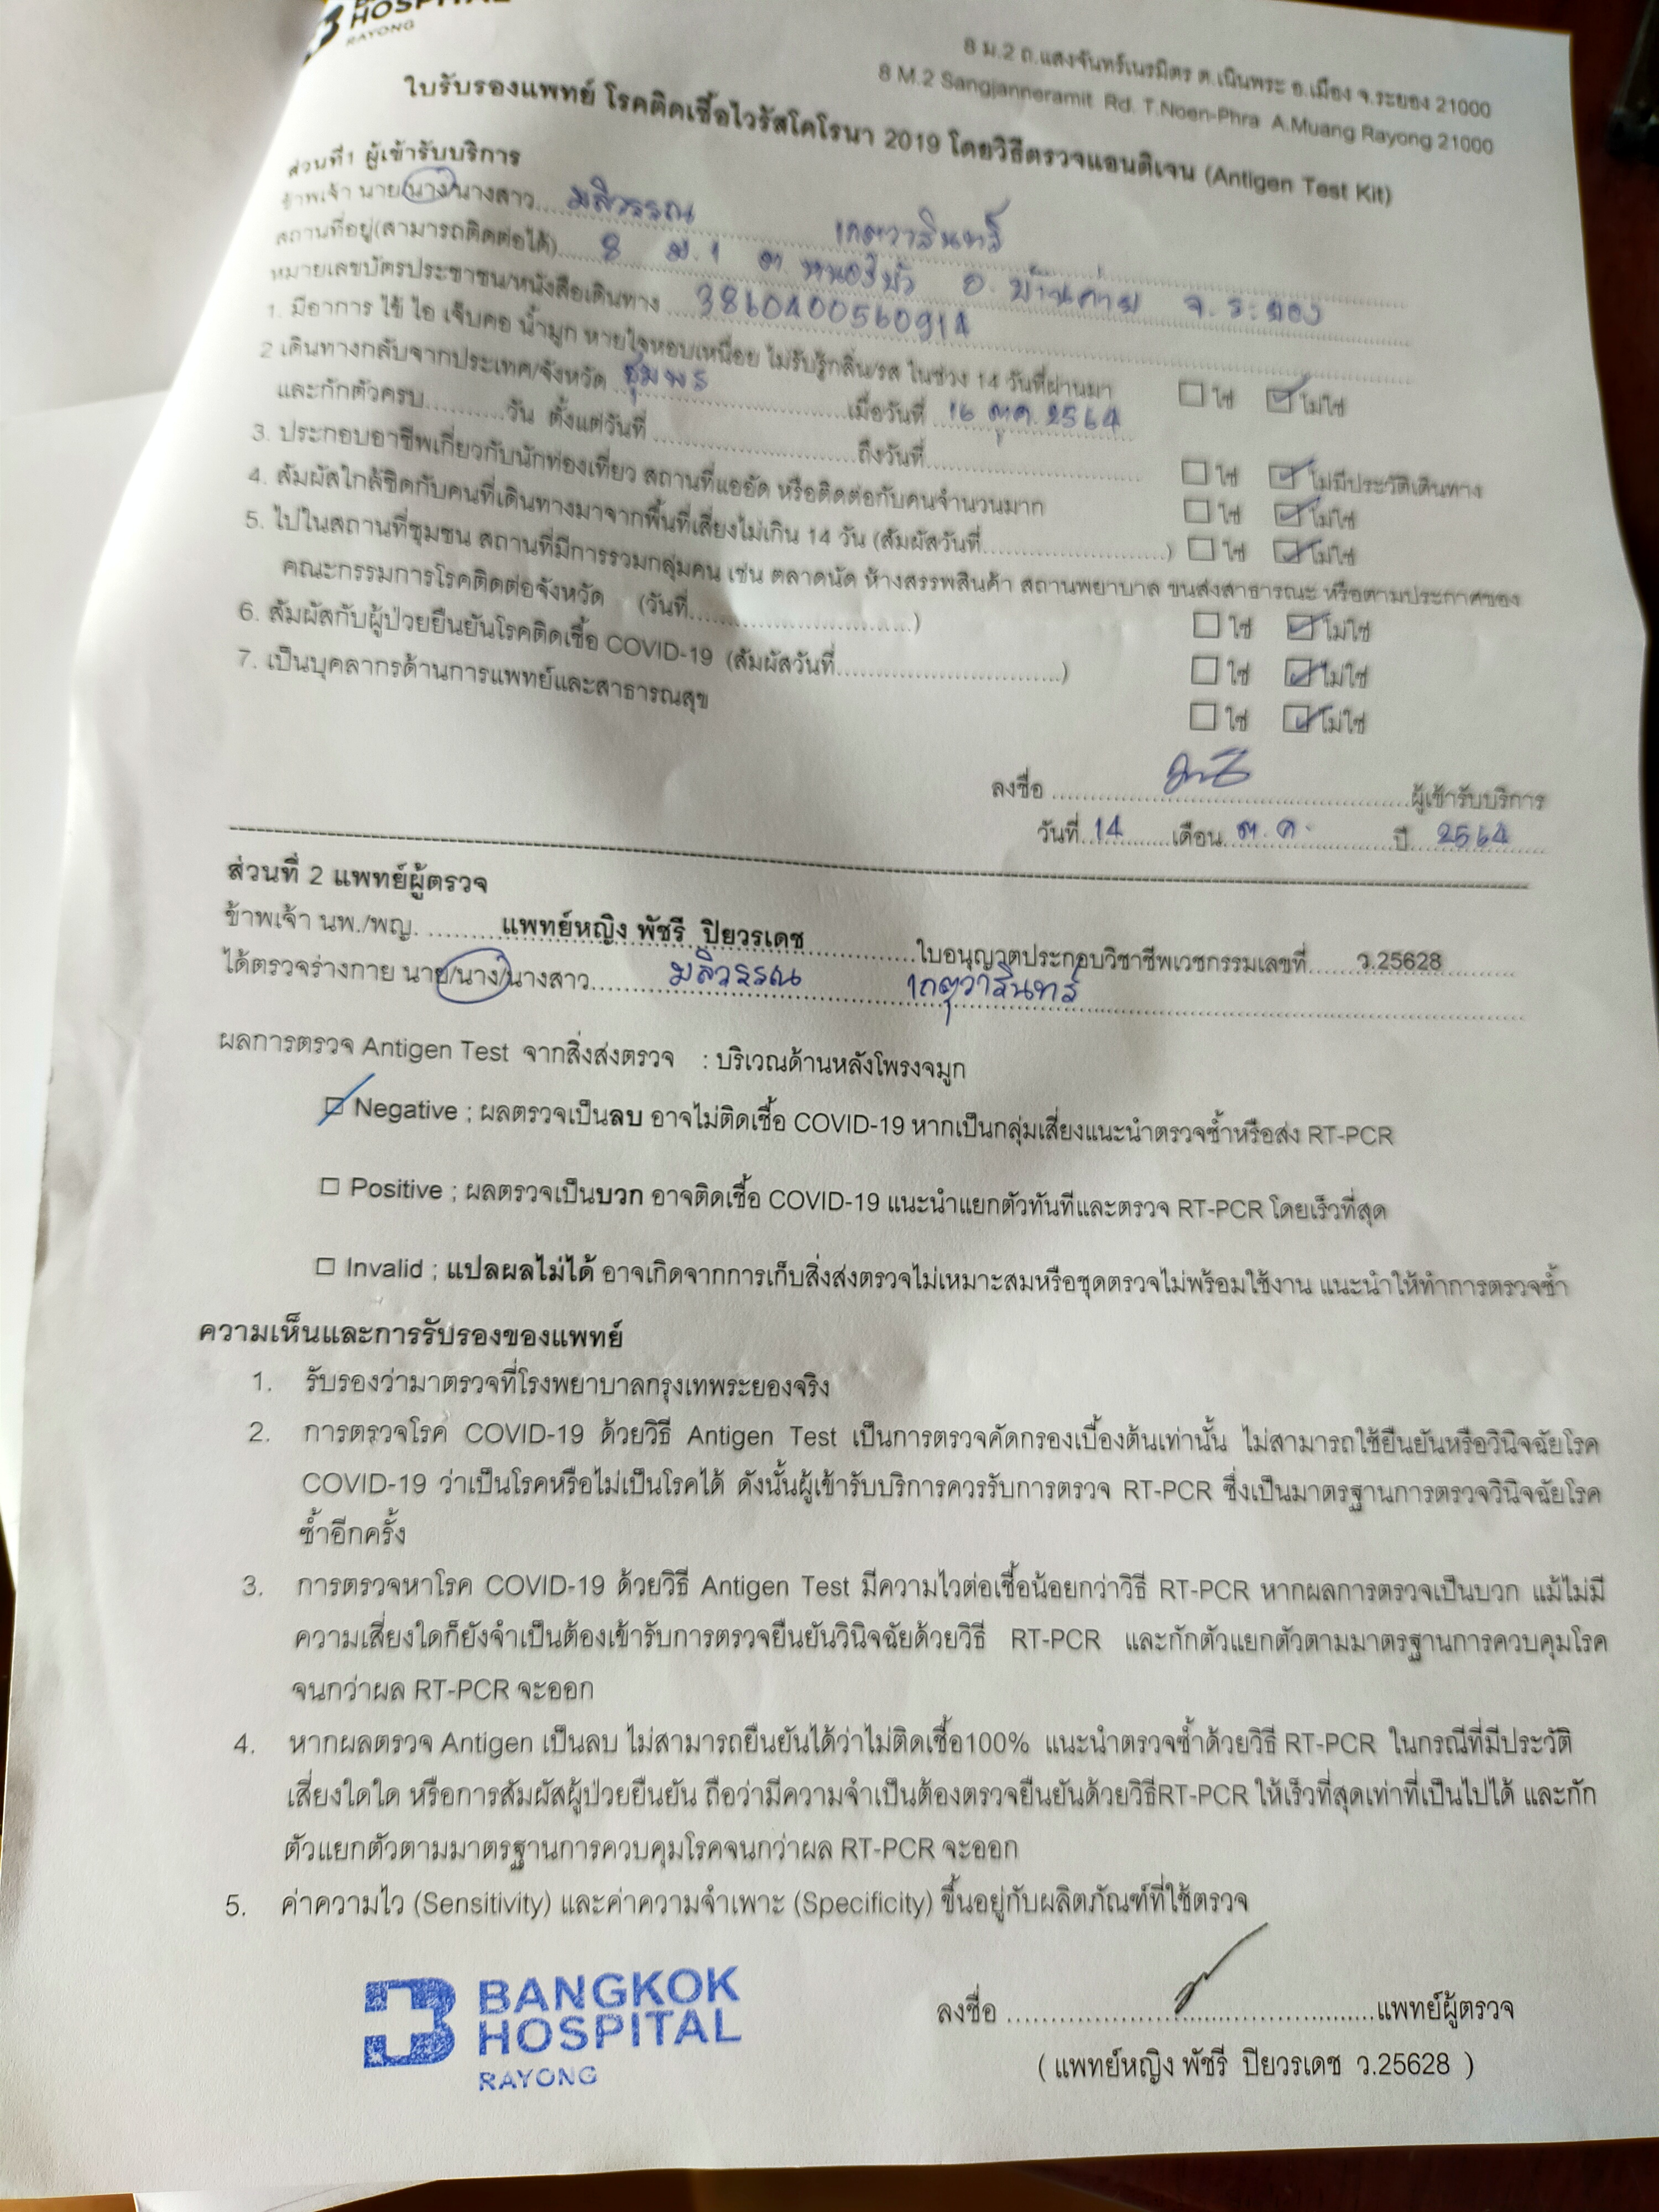 HOSPITAL
RAYONG
8 ม.2 ถ.แสงจันทร์เนรมิตร ต.เนินพระ อ.เมือง จ.ระยอง 21000
8 M.2 Sangjanneramit Rd. T.Noen-Phra A.Muang Rayong 21000
ใบรับรองแพทย์ โรคติดเชื้อไวรัสโคโรนา 2019 โดยวิธีตรวจแอนติเจน (Antigen Test Kit)
ส่วนที่1 ผู้เข้ารับบริการ
ข้าพเจ้า นาย/นาง/นางสาว มลิวรรณ เกตุวารินทร์
สถานที่อยู่(สามารถติดต่อได้) 8 ม.1 ต.หนองบัว อ.บ้านค่าย จ.ระยอง
หมายเลขบัตรประชาชน/หนังสือเดินทาง 3860400560914
1. มีอาการ ไข้ ไอ เจ็บคอ น้ำมูก หายใจหอบเหนื่อย ไม่รับรู้กลิ่น/รส ในช่วง 14 วันที่ผ่านมา ใช่ ไม่ใช่
2 เดินทางกลับจากประเทศ/จังหวัด ชุมพร เมื่อวันที่ 16 ต.ค. 2564
และกักตัวครบ วัน ตั้งแต่วันที่ ถึงวันที่ ใช่ ไม่มีประวัติเดินทาง
3. ประกอบอาชีพเกี่ยวกับนักท่องเที่ยว สถานที่แออัด หรือติดต่อกับคนจำนวนมาก ใช่ ไม่ใช่
4. สัมผัสใกล้ชิดกับคนที่เดินทางมาจากพื้นที่เสี่ยงไม่เกิน 14 วัน (สัมผัสวันที่ ) ใช่ ไม่ใช่
5. ไปในสถานที่ชุมชน สถานที่มีการรวมกลุ่มคน เช่น ตลาดนัด ห้างสรรพสินค้า สถานพยาบาล ขนส่งสาธารณะ หรือตามประกาศของ
คณะกรรมการโรคติดต่อจังหวัด (วันที่ ) ใช่ ไม่ใช่
6. สัมผัสกับผู้ป่วยยืนยันโรคติดเชื้อ COVID-19 (สัมผัสวันที่ ) ใช่ ไม่ใช่
7. เป็นบุคลากรด้านการแพทย์และสาธารณสุข ใช่ ไม่ใช่
ลงชื่อ ผู้เข้ารับบริการ
วันที่ 14 เดือน ต.ค. ปี 2564
ส่วนที่ 2 แพทย์ผู้ตรวจ
ข้าพเจ้า นพ./พญ. แพทย์หญิง พัชรี ปิยวรเดช ใบอนุญาตประกอบวิชาชีพเวชกรรมเลขที่ ว.25628
ได้ตรวจร่างกาย นาย/นาง/นางสาว มลิวรรณ เกตุวารินทร์
ผลการตรวจ Antigen Test จากสิ่งส่งตรวจ : บริเวณด้านหลังโพรงจมูก
Negative ; ผลตรวจเป็นลบ อาจไม่ติดเชื้อ COVID-19 หากเป็นกลุ่มเสี่ยงแนะนำตรวจซ้ำหรือส่ง RT-PCR
Positive ; ผลตรวจเป็นบวก อาจติดเชื้อ COVID-19 แนะนำแยกตัวทันทีและตรวจ RT-PCR โดยเร็วที่สุด
Invalid ; แปลผลไม่ได้ อาจเกิดจากการเก็บสิ่งส่งตรวจไม่เหมาะสมหรือชุดตรวจไม่พร้อมใช้งาน แนะนำให้ทำการตรวจซ้ำ
ความเห็นและการรับรองของแพทย์
1. รับรองว่ามาตรวจที่โรงพยาบาลกรุงเทพระยองจริง
2. การตรวจโรค COVID-19 ด้วยวิธี Antigen Test เป็นการตรวจคัดกรองเบื้องต้นเท่านั้น ไม่สามารถใช้ยืนยันหรือวินิจฉัยโรค
COVID-19 ว่าเป็นโรคหรือไม่เป็นโรคได้ ดังนั้นผู้เข้ารับบริการควรรับการตรวจ RT-PCR ซึ่งเป็นมาตรฐานการตรวจวินิจฉัยโรค
ซ้ำอีกครั้ง
3. การตรวจหาโรค COVID-19 ด้วยวิธี Antigen Test มีความไวต่อเชื้อน้อยกว่าวิธี RT-PCR หากผลการตรวจเป็นบวก แม้ไม่มี
ความเสี่ยงใดก็ยังจำเป็นต้องเข้ารับการตรวจยืนยันวินิจฉัยด้วยวิธี RT-PCR และกักตัวแยกตัวตามมาตรฐานการควบคุมโรค
จนกว่าผล RT-PCR จะออก
4. หากผลตรวจ Antigen เป็นลบ ไม่สามารถยืนยันได้ว่าไม่ติดเชื้อ100% แนะนำตรวจซ้ำด้วยวิธี RT-PCR ในกรณีที่มีประวัติ
เสี่ยงใดใด หรือการสัมผัสผู้ป่วยยืนยัน ถือว่ามีความจำเป็นต้องตรวจยืนยันด้วยวิธีRT-PCR ให้เร็วที่สุดเท่าที่เป็นไปได้ และกัก
ตัวแยกตัวตามมาตรฐานการควบคุมโรคจนกว่าผล RT-PCR จะออก
5. ค่าความไว (Sensitivity) และค่าความจำเพาะ (Specificity) ขึ้นอยู่กับผลิตภัณฑ์ที่ใช้ตรวจ
BANGKOK
HOSPITAL
RAYONG
ลงชื่อ แพทย์ผู้ตรวจ
( แพทย์หญิง พัชรี ปิยวรเดช ว.25628 )